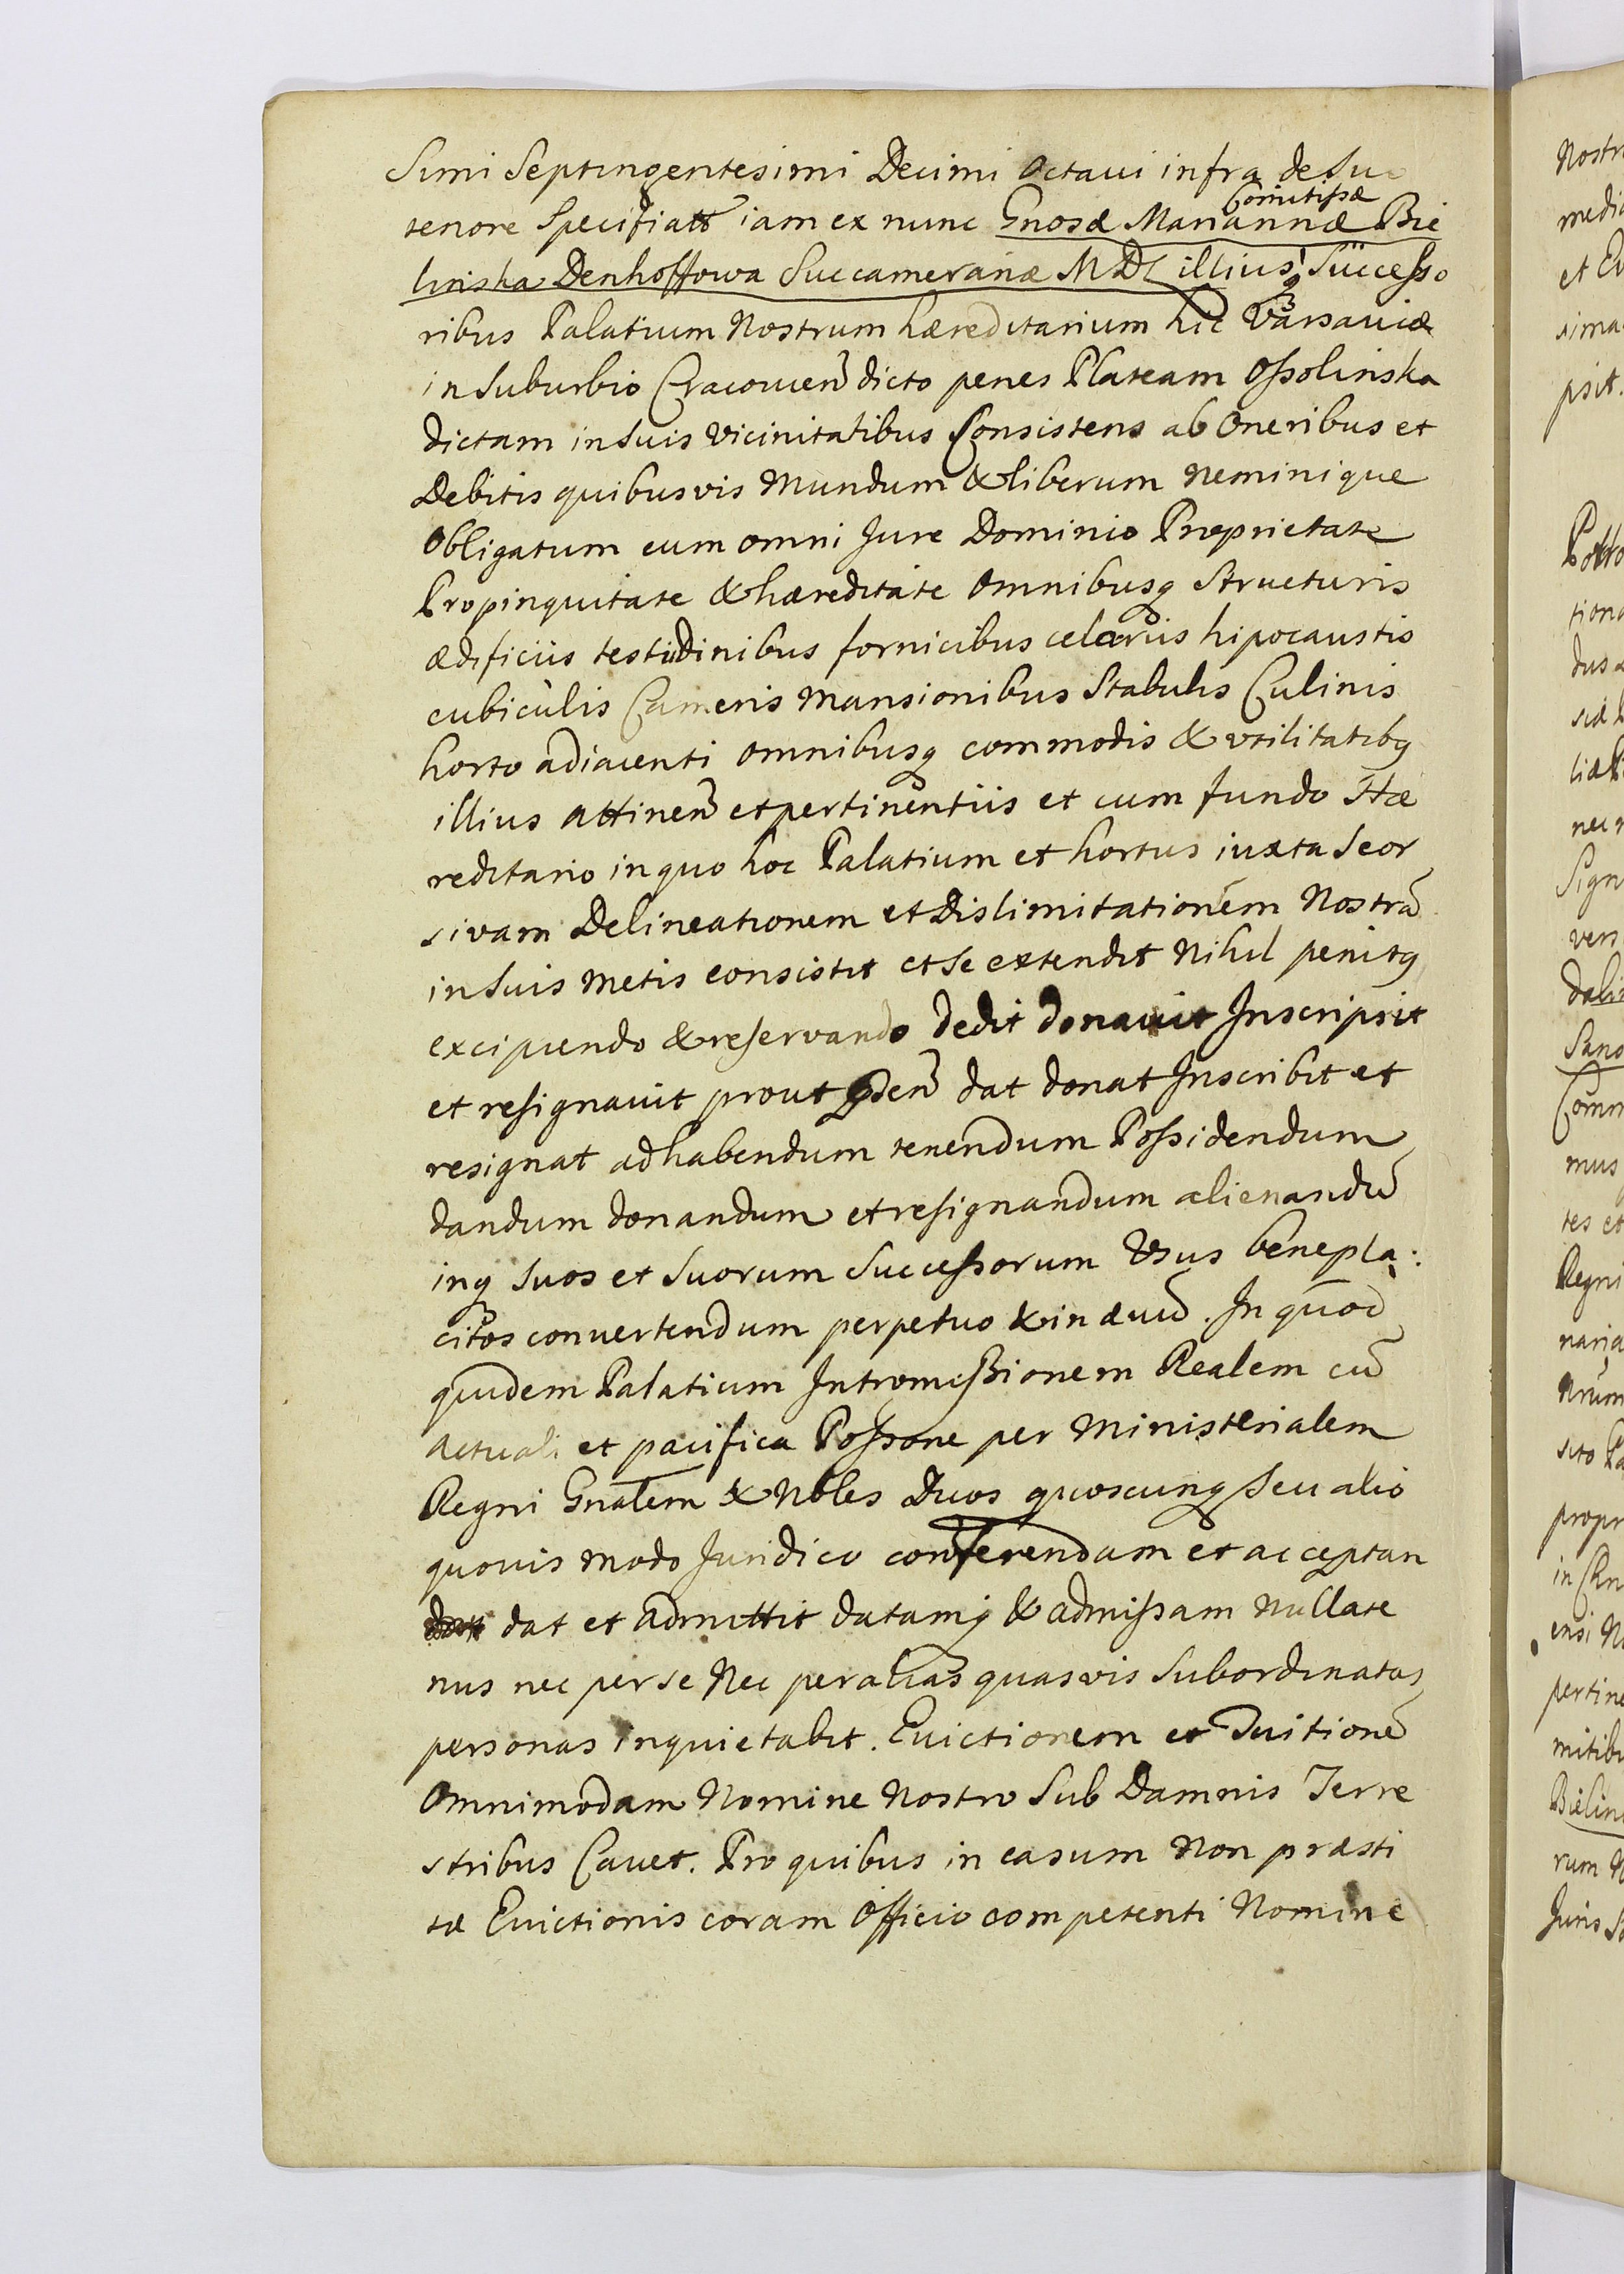 Simi Septingentesimi Decimi Octaui infra de Su
Comitissæ
tenore Specifiatt iam ex nunc Gnosæ Mariannæ Bie
linska Denhoffowa Succameranæ MDL illiusq Successo
ribus Palatium Nostrum hæreditarium hic Varsauiæ
in Suburbio Cracouien dicto penes Plateam Ossolinska
dictam in Suis Vicinitatibus Consistens ab Oneribus et
Debitis quibusvis Mundum & liberum Neminique
Obligatum cum omni Jure Dominio Proprietate
Propinquitate & hæreditate Omnibusq Structuris
ædificiis testudinibus fornicibus celariis hipocaustis
cubiculis Cameris Mansionibus Stabulis Culinis
horto adiacenti Omnibusq commodis & vtilitatibq
illius attinen et pertinentiis et cum fundo Hæ
reditario in quo hoc Palatium et hortus iuxta Seor
sivam Delineationem et Dislimitationem Nostrã
in Suis Metis consistit et Se extendit Nihil penitq
excipiendo & reservando dedit donauit Inscripsit
et resignauit prout psen dat donat Inscribit et
resignat ad habendum tenendum Possidendum
dandum donandum et resignandum alienandũ
inq Suos et Suorum Successorum Vsus benepla:
citos conuertendum perpetuo & in æuũ. In quod
quidem Palatium Intromissionem Realem cũ
actuali et pacifica Possone per Ministerialem
Regni Gnalem & Nbles Duos quoscunq Seu alio
quouis modo Juridico conferendam et acceptan
dat et admittit datamq & admissam Nullate
nus nec per se Nec per alias quasvis Subordinatas
personas inquietabit. Euictionem et Tuitionẽ
Omnimodam Nomine Nostro Sub Damnis Terre
stribus Cauet. Pro quibus in casum Non præsti
tæ Euictionis coram Officio competenti Nomine